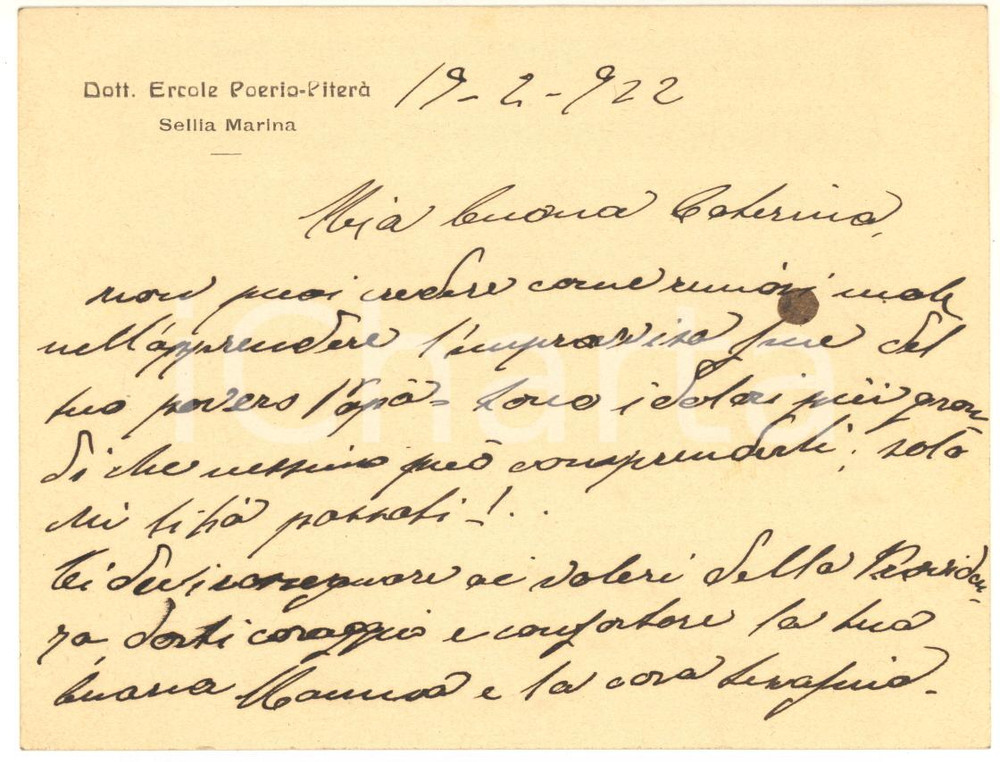 Dott. Ercole Poerio-Piterà
Sellia Marina
19-2-922
Mia buona Caterina,
non puoi credere come rimasi male
nell'apprendere l'improvvisa fine del
tuo povero Papà= Sono i dolori più gran-
di che nessuno può comprenderli; solo
chi li ha passati!..
Ti devi rassegnare ai voleri della Provviden-
za darti coraggio e confortare la tua
buona Mamma e la cara Serafina.
iCharta